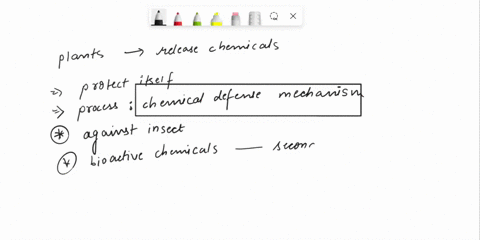 plants → release chemicals
⇒ protect itself
⇒ process : chemical defense mechanism
* against insect
* bioactive chemicals — secon